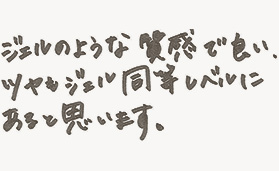 ジェルのような質感で良い、
ツヤもジェル同等レベルに
あると思います。